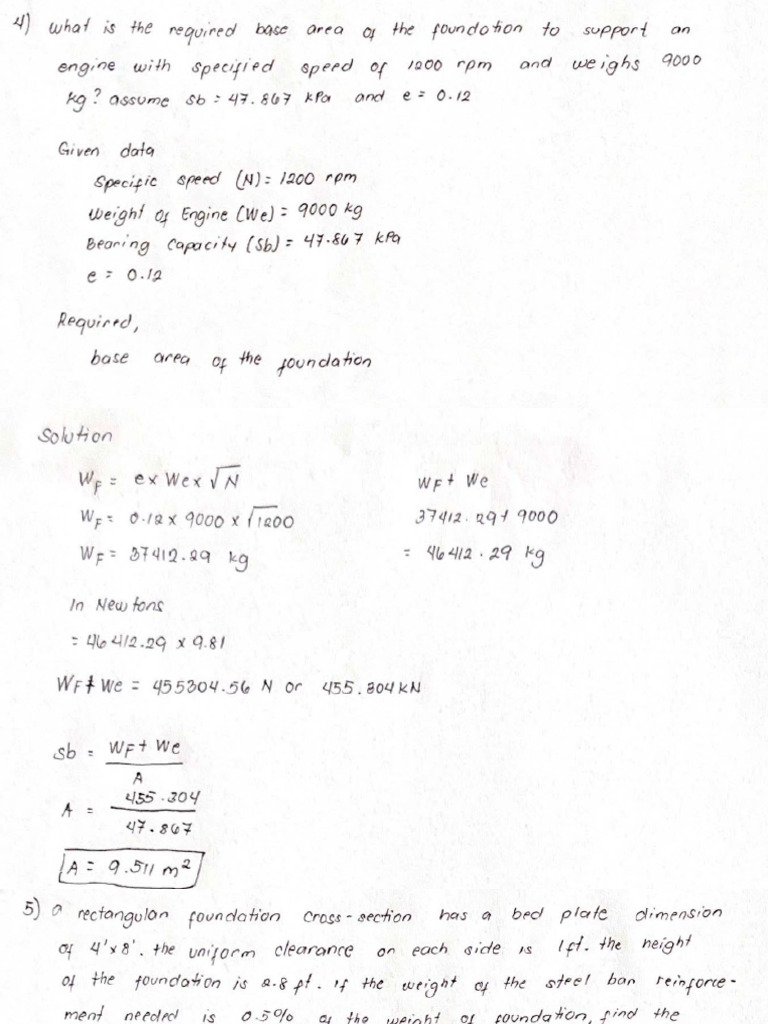 4) what is the required base area of the foundation to support an
engine with specified speed of 1200 rpm and weighs 9000
kg? assume sb = 47.867 kPa and e = 0.12
Given data
Specific speed (N) = 1200 rpm
Weight of Engine (We) = 9000 kg
Bearing Capacity (Sb) = 47.867 kPa
e = 0.12
Required,
base area of the foundation
Solution
WF = e x We x √N
WF + We
WF = 0.12 x 9000 x √1200
37412.29 + 9000
WF = 37412.29 kg
= 46412.29 kg
In Newtons
= 46412.29 x 9.81
WF + We = 455304.56 N or 455.304 kN
Sb = WF + We
A
A = 455.304
47.867
A = 9.511 m²
5) a rectangular foundation cross-section has a bed plate dimension
of 4'x8'. the uniform clearance on each side is 1ft. the height
of the foundation is 2.8 ft. if the weight of the steel bar reinforce-
ment needed is 0.5% of the weight of foundation, find the